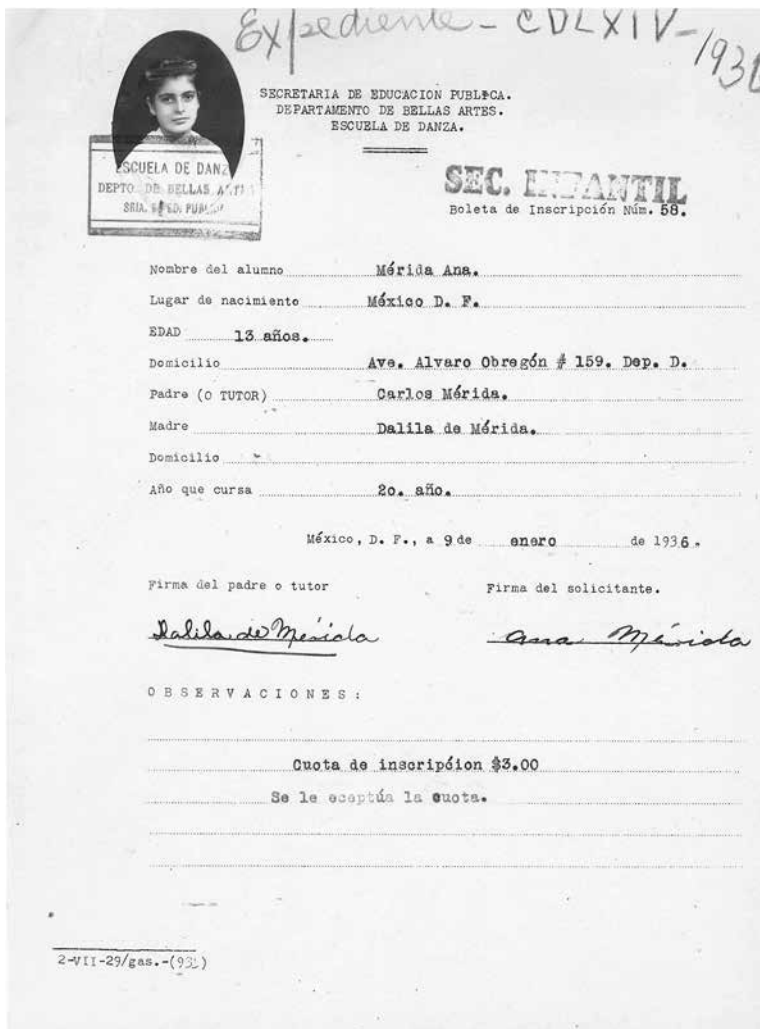 Expediente - CDLXIV - 193
SECRETARIA DE EDUCACION PUBLICA.
DEPARTAMENTO DE BELLAS ARTES.
ESCUELA DE DANZA.
ESCUELA DE DANZ
DEPTO. DE BELLAS ARTES
SRIA. DE ED. PUBLICA
SEC. INFANTIL
Boleta de Inscripción Núm. 58.
Nombre del alumno Mérida Ana.
Lugar de nacimiento México D. F.
EDAD 13 años.
Domicilio Ave. Alvaro Obregón # 159. Dep. D.
Padre (O TUTOR) Carlos Mérida.
Madre Dalila de Mérida.
Domicilio
Año que cursa 2o. año.
México, D. F., a 9 de enero de 1936.
Firma del padre o tutor Firma del solicitante.
Dalila de Mérida Ana Mérida
OBSERVACIONES:
Cuota de inscripóion $3.00
Se le eceptúa la cuota.
2-VII-29/gas.-(931)